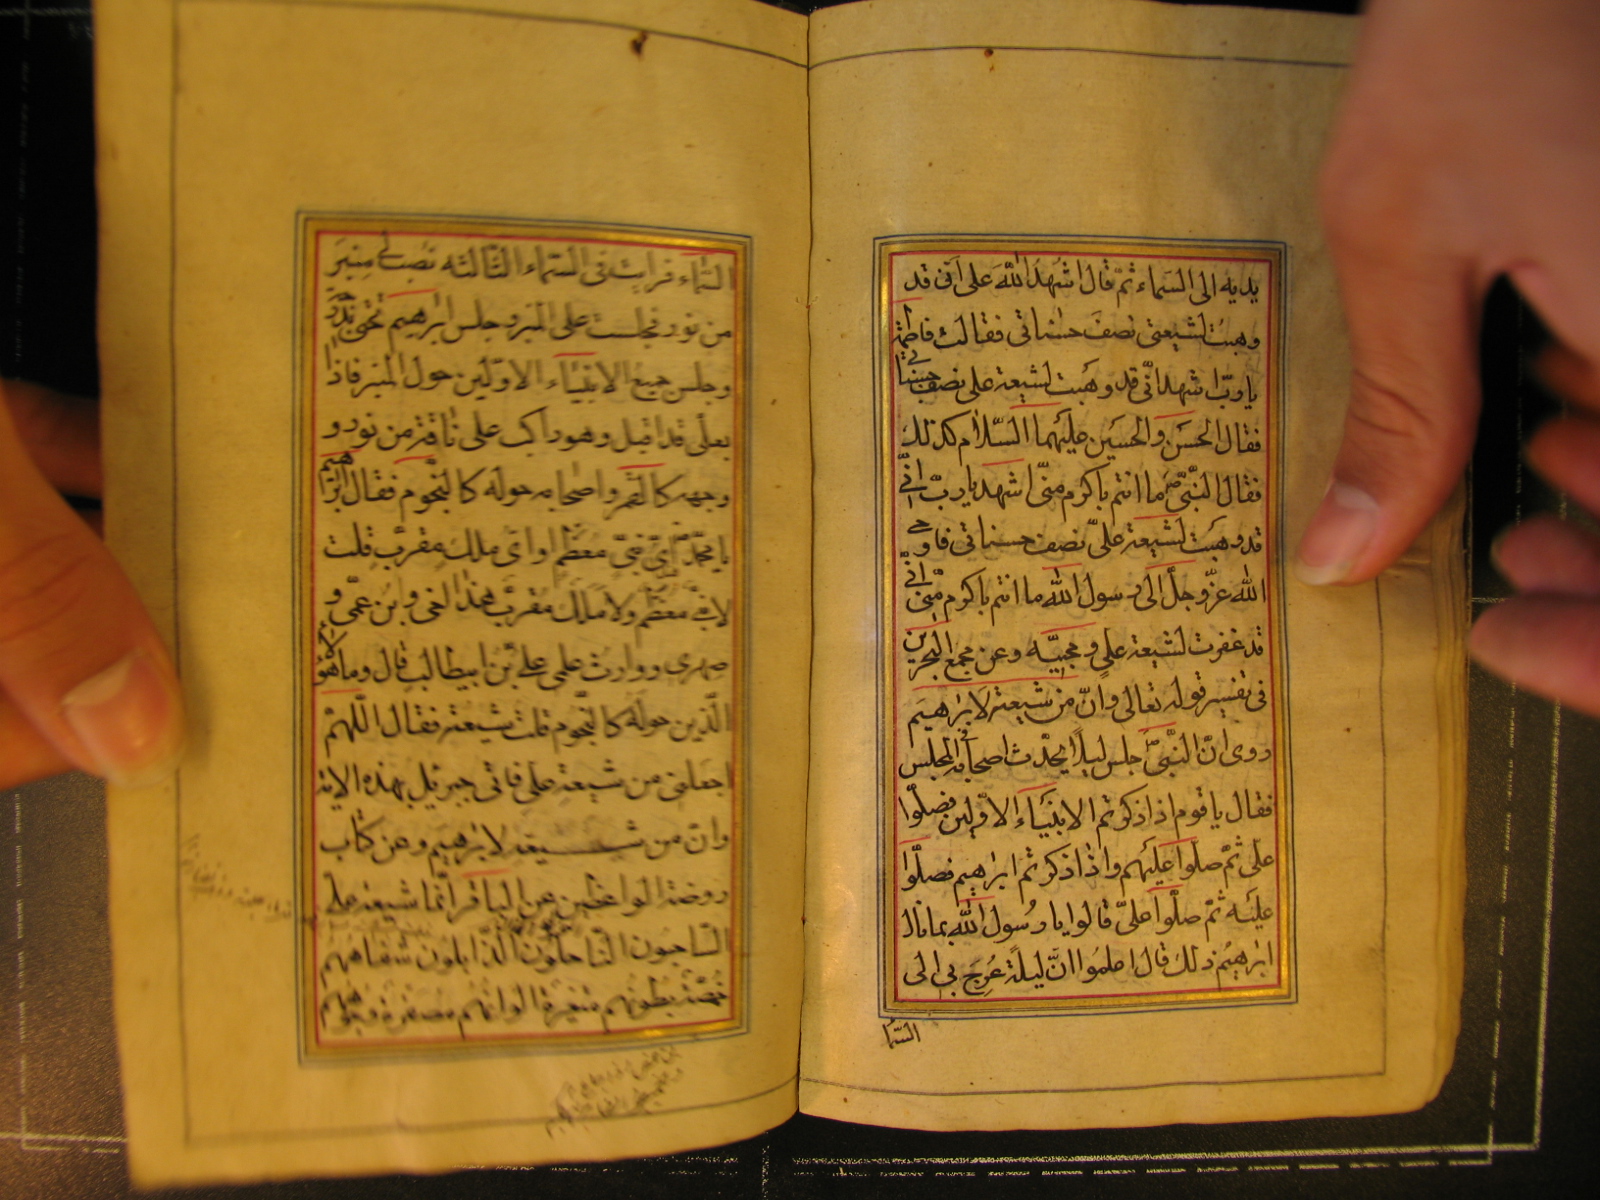 يديه الى السماء ثم قال اشهد الله على اني قد
وهبت لشيعتي نصف حسناتي فقالت فاطمة
يا رب اشهد اني قد وهبت لشيعة علي نصف حسناتي
فقال الحسن والحسين عليهما السلام كذلك
فقال النبي ص ما انتم باكرم مني اشهد يا رب اني
قد وهبت لشيعة علي نصف حسناتي فاوحى
الله عز وجل الى رسول الله ما انتم باكرم مني اني
قد غفرت لشيعة علي ومحبيه وعن مجمع البحرين
في تفسير قوله تعالى وان من شيعته لابرهيم
روى ان النبي ص جلس ليلا يحدث اصحابه في المجلس
فقال يا قوم اذا ذكرتم الانبياء الاولين فصلوا
على ثم صلوا عليهم واذا ذكرتم ابرهيم فصلوا
عليه ثم صلوا علي قالوا يا رسول الله بما نال
ابرهيم ذلك قال اعلموا ان ليلة عرج بي الى
السماء
السماء فرات في السماء الثالثة نصب لي منبر
من نور فجلست على المنبر وجلس ابرهيم تحتي بدرجة
وجلس جميع الانبياء الاولين حول المنبر فاذا
بعلي قد اقبل وهو راكب على ناقة من نور و
وجهه كالقمر واصحابه حوله كالنجوم فقال ابرهيم
يا محمد اي نبي معظم او اي ملك مقرب قلت
لا نبي معظم ولا ملك مقرب هذا اخي وابن عمي و
صهري ووارث علمي علي بن ابيطالب قال وما هؤلاء
الذين حوله كالنجوم قلت شيعته فقال اللهم
اجعلني من شيعة علي فاتى جبرئيل بهذه الاية
وان من شيعته لابرهيم وعن كتاب
روضة الواعظين عن الباقر انما شيعة علي
الشاحبون الناحلون الذابلون شفاههم
خمصة بطونهم متغيرة الوانهم مصفرة وجوههم